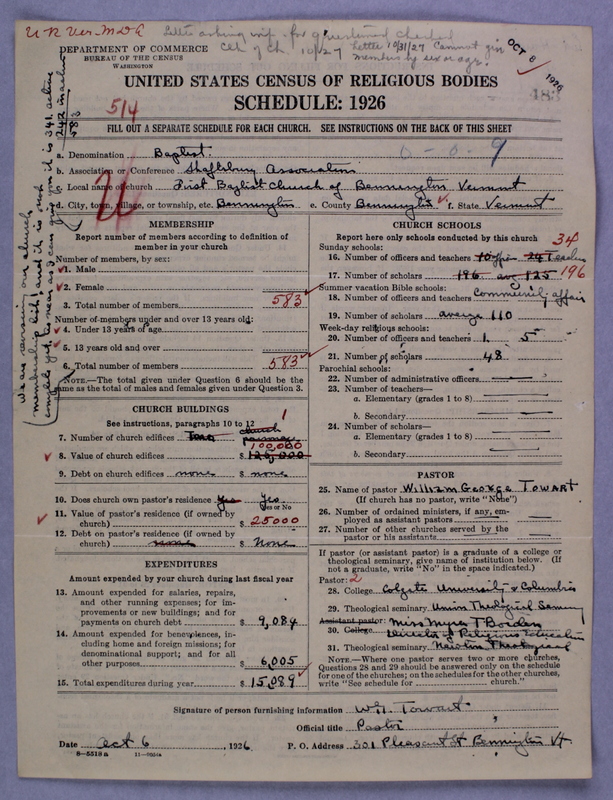 U R Ver. M D A
10/27 Letter 10/31/27 Cannot give
members by sex or age.
OCT 8 1926
DEPARTMENT OF COMMERCE
BUREAU OF THE CENSUS
WASHINGTON
UNITED STATES CENSUS OF RELIGIOUS BODIES
SCHEDULE: 1926
514
FILL OUT A SEPARATE SCHEDULE FOR EACH CHURCH. SEE INSTRUCTIONS ON THE BACK OF THIS SHEET
a. Denomination Baptist
0-0-9
b. Association or Conference Shaftsbury Association
c. Local name of church First Baptist Church of Bennington Vermont
d. City, town, village, or township, etc. Bennington e. County Bennington f. State Vermont
We are revising our church
membership list, and it is not
complete yet. As near as I can give you it is 341 active
242 inactive
583
MEMBERSHIP
Report number of members according to definition of
member in your church
Number of members, by sex:
1. Male
2. Female
3. Total number of members 583
Number of members under and over 13 years old:
4. Under 13 years of age
5. 13 years old and over
6. Total number of members 583
NOTE.—The total given under Question 6 should be the
same as the total of males and females given under Question 3.
CHURCH BUILDINGS
See instructions, paragraphs 10 to 12
7. Number of church edifices Two church 1
parsonage
100,000
8. Value of church edifices $ 125,000
9. Debt on church edifices none $ none
10. Does church own pastor's residence yes Yes
Yes or No
11. Value of pastor's residence (if owned by
church) $ 25000
12. Debt on pastor's residence (if owned by
church) none $ None
EXPENDITURES
Amount expended by your church during last fiscal year
13. Amount expended for salaries, repairs,
and other running expenses; for im-
provements or new buildings; and for
payments on church debt $ 9,084
14. Amount expended for benevolences, in-
cluding home and foreign missions; for
denominational support; and for all
other purposes $ 6,005
15. Total expenditures during year $ 15,089
CHURCH SCHOOLS
Report here only schools conducted by this church 34
Sunday schools:
16. Number of officers and teachers 10 off 24 Teachers
17. Number of scholars 196 ave 125 196
Summer vacation Bible schools:
18. Number of officers and teachers Community affair
19. Number of scholars average 110
Week-day religious schools:
20. Number of officers and teachers 1 5
21. Number of scholars 48
Parochial schools:
22. Number of administrative officers
23. Number of teachers—
a. Elementary (grades 1 to 8)
b. Secondary
24. Number of scholars—
a. Elementary (grades 1 to 8)
b. Secondary
PASTOR
25. Name of pastor William George Towart
(If church has no pastor, write "None")
26. Number of ordained ministers, if any, em-
ployed as assistant pastors
27. Number of other churches served by the
pastor or his assistants
If pastor (or assistant pastor) is a graduate of a college or
theological seminary, give name of institution below. (If
not a graduate, write "No" in the space indicated.)
Pastor: 2
28. College Colgate University & Columbia
29. Theological seminary Union Theological Seminary
Assistant pastor: Miss Myra T Borden
30. College Director of Religious Education
31. Theological seminary Newton Theological
NOTE.—Where one pastor serves two or more churches,
Questions 28 and 29 should be answered only on the schedule
for one of the churches; on the schedules for the other churches,
write "See schedule for church."
Signature of person furnishing information W. G. Towart
Official title Pastor
Date Oct 6, 1926. P. O. Address 301 Pleasant St Bennington Vt
8—5518a 11—9604a